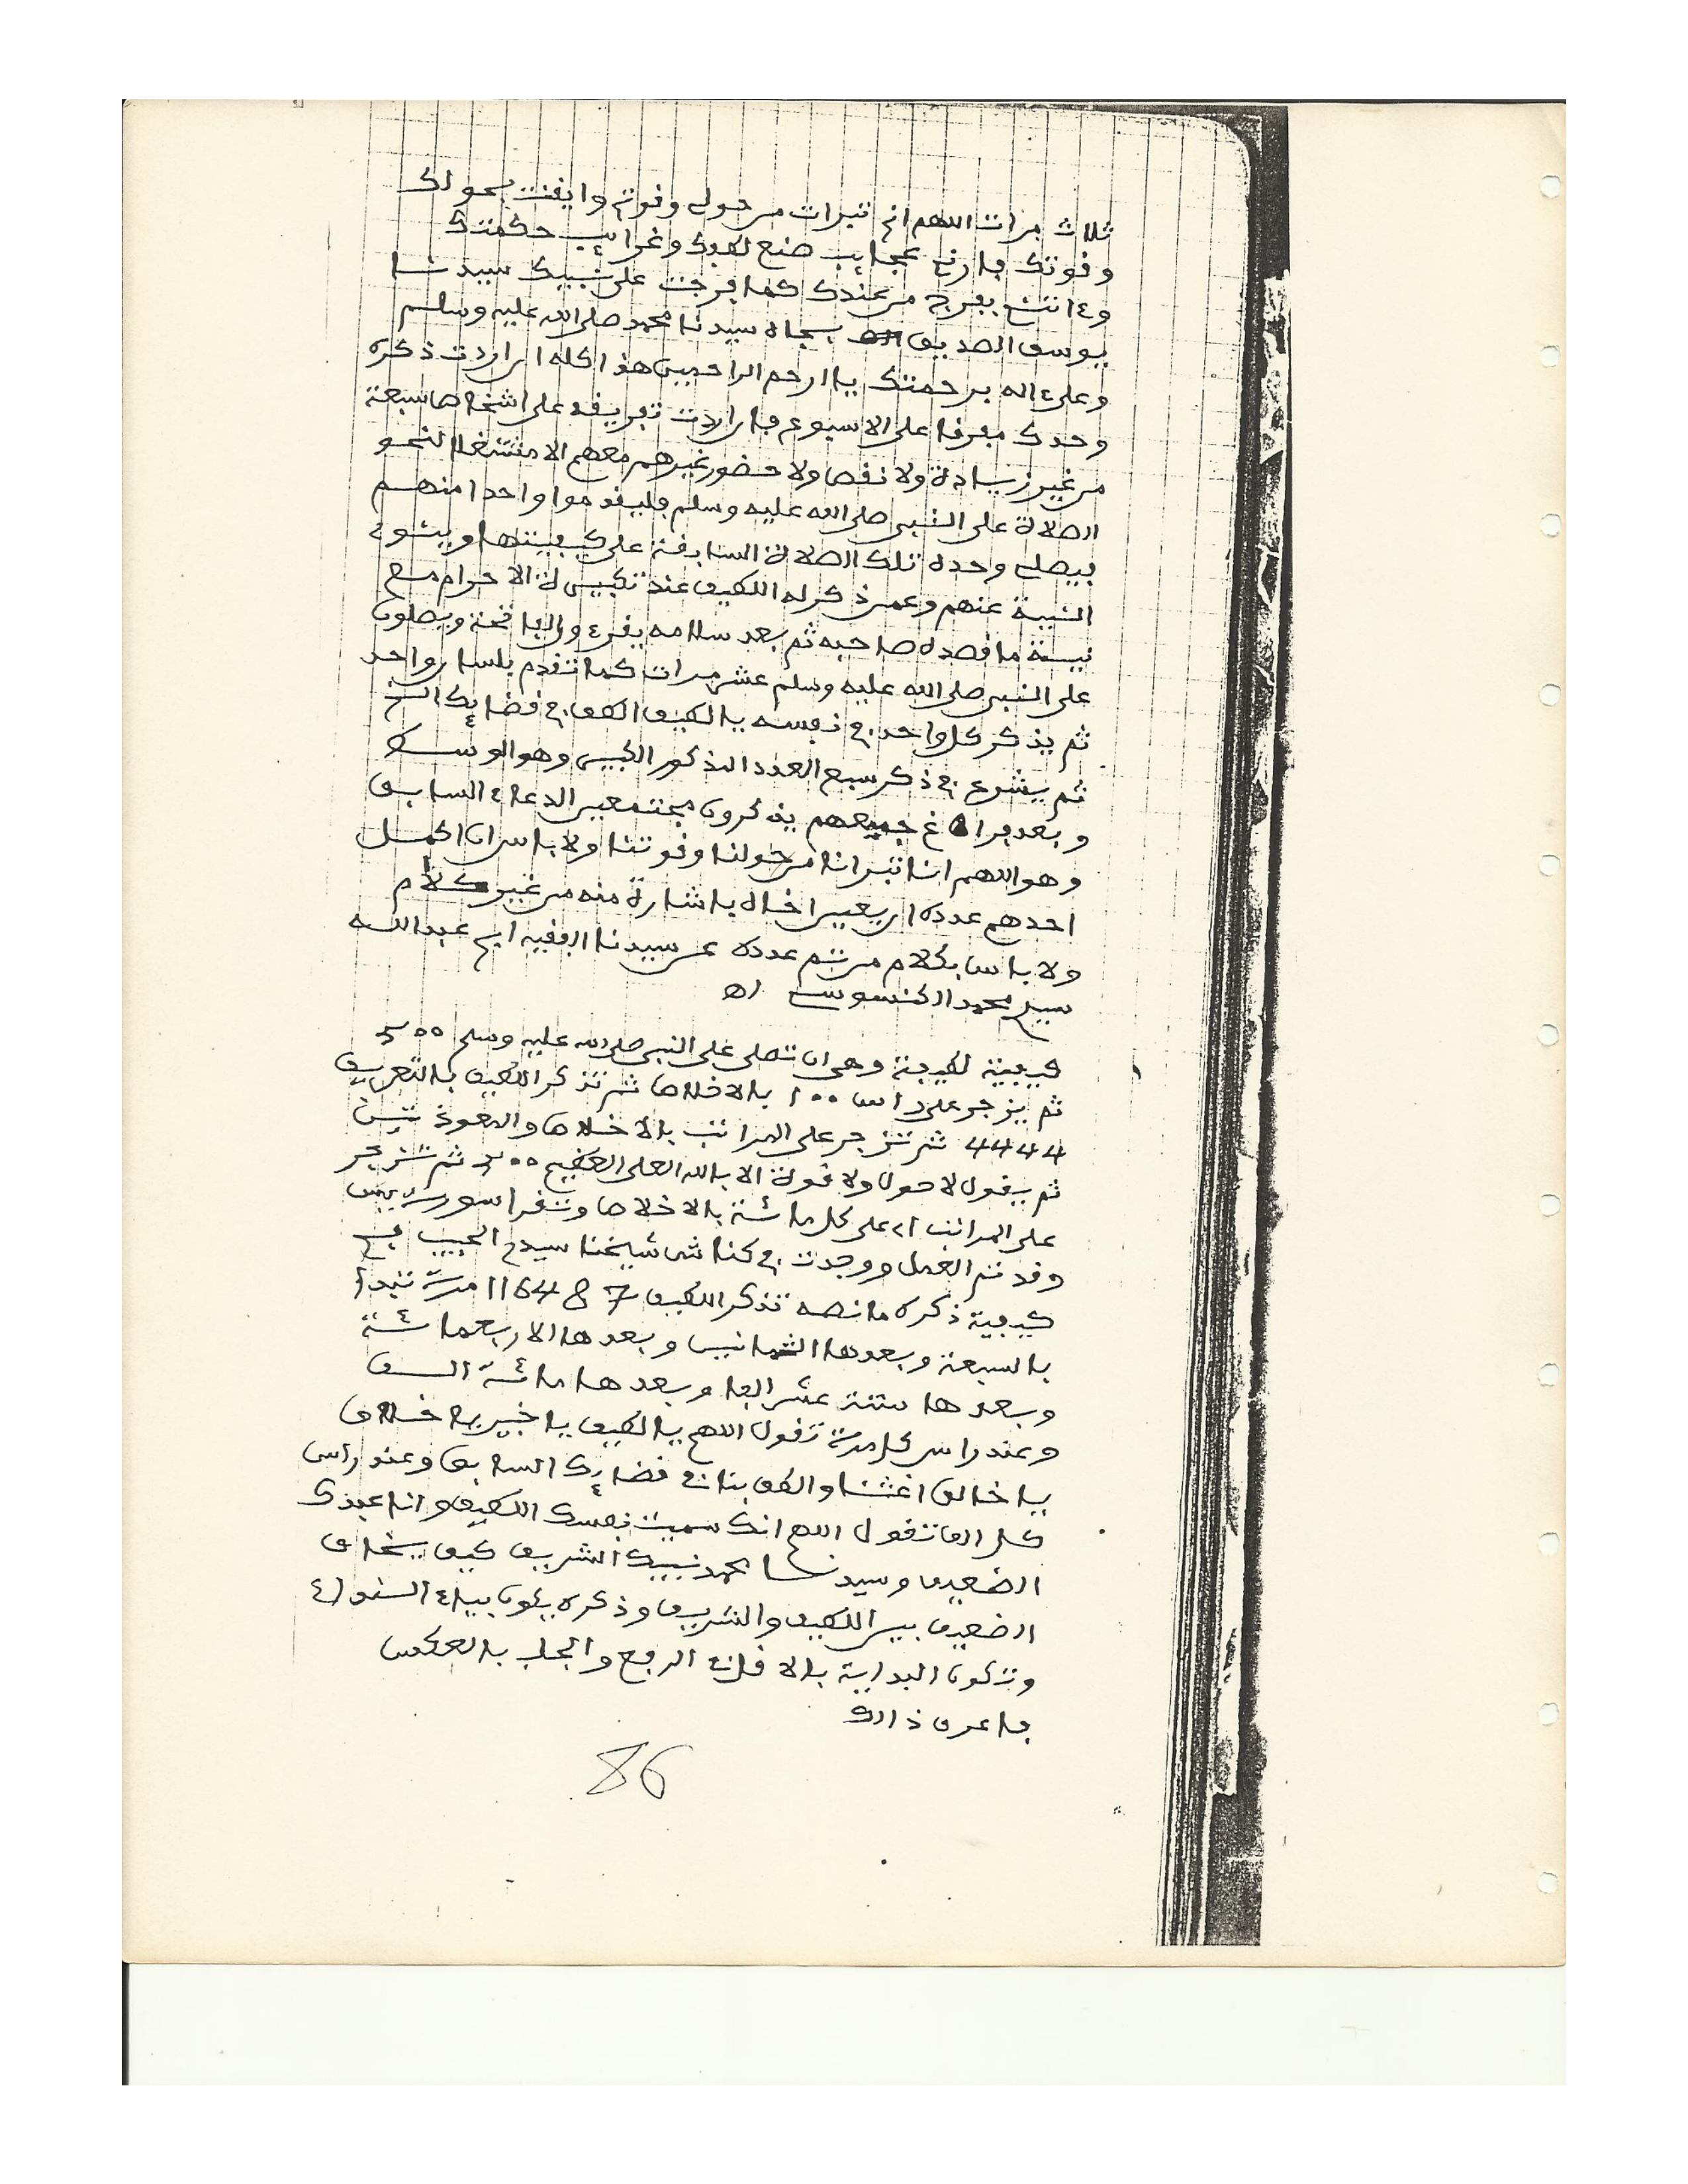 ثلاث مرات اللهم اني تبرات من حولي وقوتي وايقنت بحولك
وقوتك فارني عجايب صنع لطفك وغرايب حكمتك
وءاتني بفرج من عندك كما فرجت على نبيك سيدنا
يوسف الصديق بجاه سيدنا محمد صلى الله عليه وسلم
وعلى ءاله برحمتك يا ارحم الراحمين هذا كله ان اردت ذكره
وحدك مفرقا على الاسبوع فان اردت تفريقه على اشخاص سبعة
من غير زيادة ولا نقص ولا حضور غيرهم معهم الا مشتغلا لنحو
الصلاة على النبي صلى الله عليه وسلم فليقدموا واحدا منهم
فيصلي وحده تلك الصلاة السابقة على كيفيتها وينوي
النية عنهم وعمن ذكر له اللطيف عند تكبيرة الاحرام مع
نية ما قصده صاحبه ثم بعد سلامه يقرءون الفاتحة ويصلون
على النبي صلى الله عليه وسلم عشر مرات كما تقدم بلسان واحد
ثم يذكر كل واحد في نفسه يا لطيف الطف بي في قضايك الخ
ثم يشرع في ذكر سبع العدد المذكور الكبير وهو الوسط
وبعد فراغ جميعهم يذكرون مجتمعين الدعاء السابق
وهو اللهم انا تبرانا من حولنا وقوتنا ولا باس ان اكمل
احدهم عدده ان يعين اخاه باشارة منه من غير كلام
ولا باس بكلام من تم عدده عن سيدنا الفقيه ابي عبد الله
سيدي محمد اكنسوس اه
كيفية لطيفة وهي ان تصلي على النبي صلى الله عليه وسلم 500
ثم يزجر على راس 100 بالاخلاص ثم تذكر اللطيف بالتعريف
4444 ثم تزجر على المراتب بالاخلاص والمعوذتين
ثم يقول لا حول ولا قوة الا بالله العلي العظيم 500 ثم تزجر
على المراتب اي على كل مائة بالاخلاص وتقرا سورة يس
وقد تم العمل ووجدت في كناش شيخنا سيدي الحبيب في
كيفية ذكره ما نصه تذكر اللطيف 7 8 4 16 1 مرة تبدا
بالسبعة وبعدها الثمانين وبعدها الاربعمائة
وبعدها ستة عشر الفا وبعدها مائة الف
وعند راس كل مرة تقول اللهم يا لطيف يا خبير يا خلاق
يا خالق اغثنا والطف بنا في قضايك السابق وعند راس
كل الف تقول اللهم انك سميت نفسك اللطيف وانا عبدك
الضعيف وسيدنا محمد نبيك الشريف كيف يخاف
الضعيف بين اللطيف والشريف وذكره يكون بياء النداء
وتكون البداية بالاقل في الرفع والجلب بالعكس
فاعرف ذالك
86